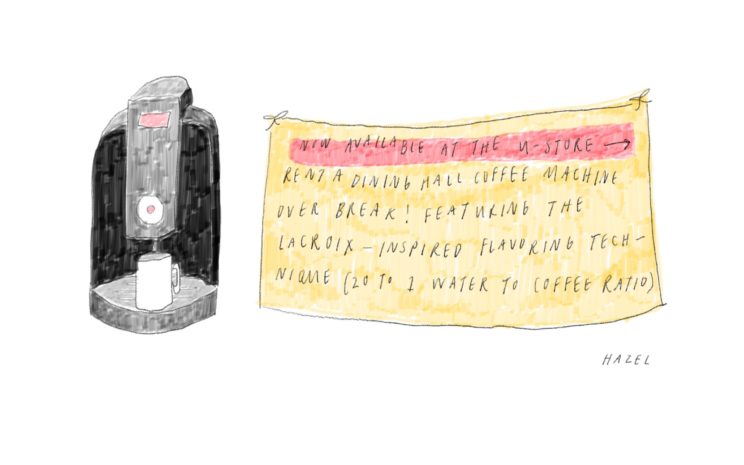 NOW AVAILABLE AT THE U-STORE →
RENT A DINING HALL COFFEE MACHINE
OVER BREAK! FEATURING THE
LACROIX-INSPIRED FLAVORING TECH-
NIQUE (20 TO 1 WATER TO COFFEE RATIO)
HAZEL